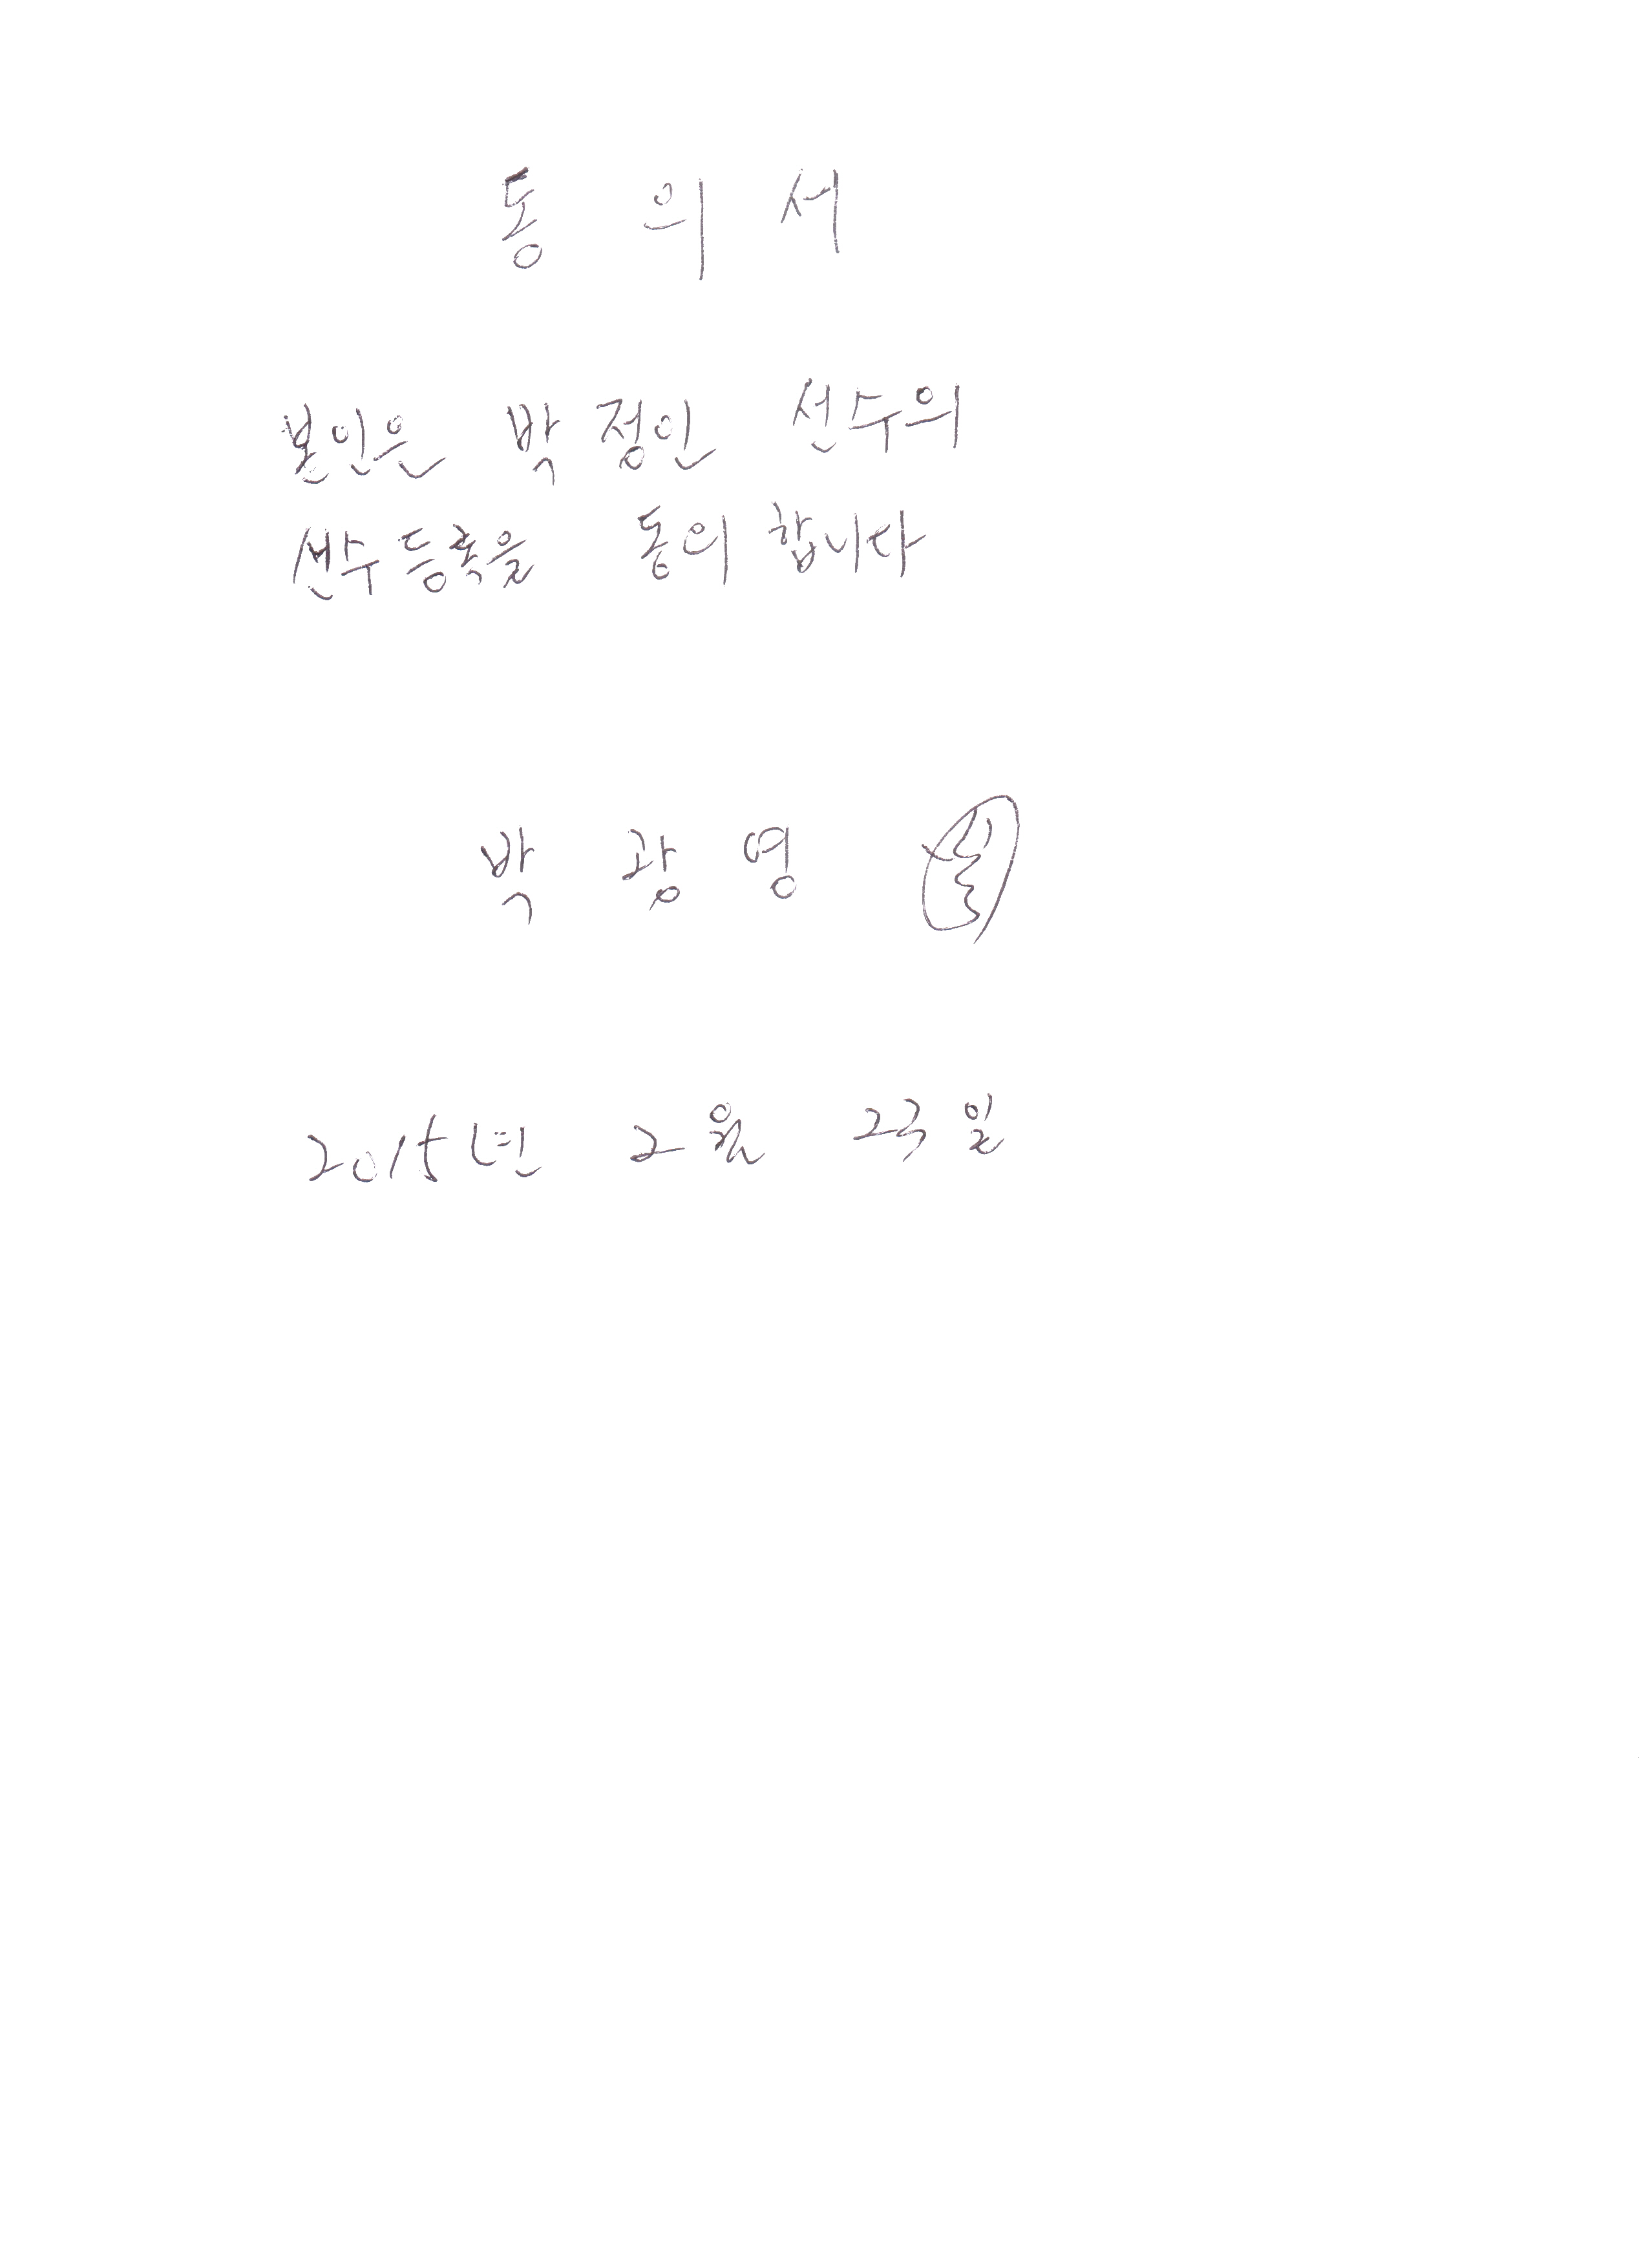 동 의 서
본인은 박정인 선수의
선수등록을 동의 합니다
박 광 영
2015년 2월 23일